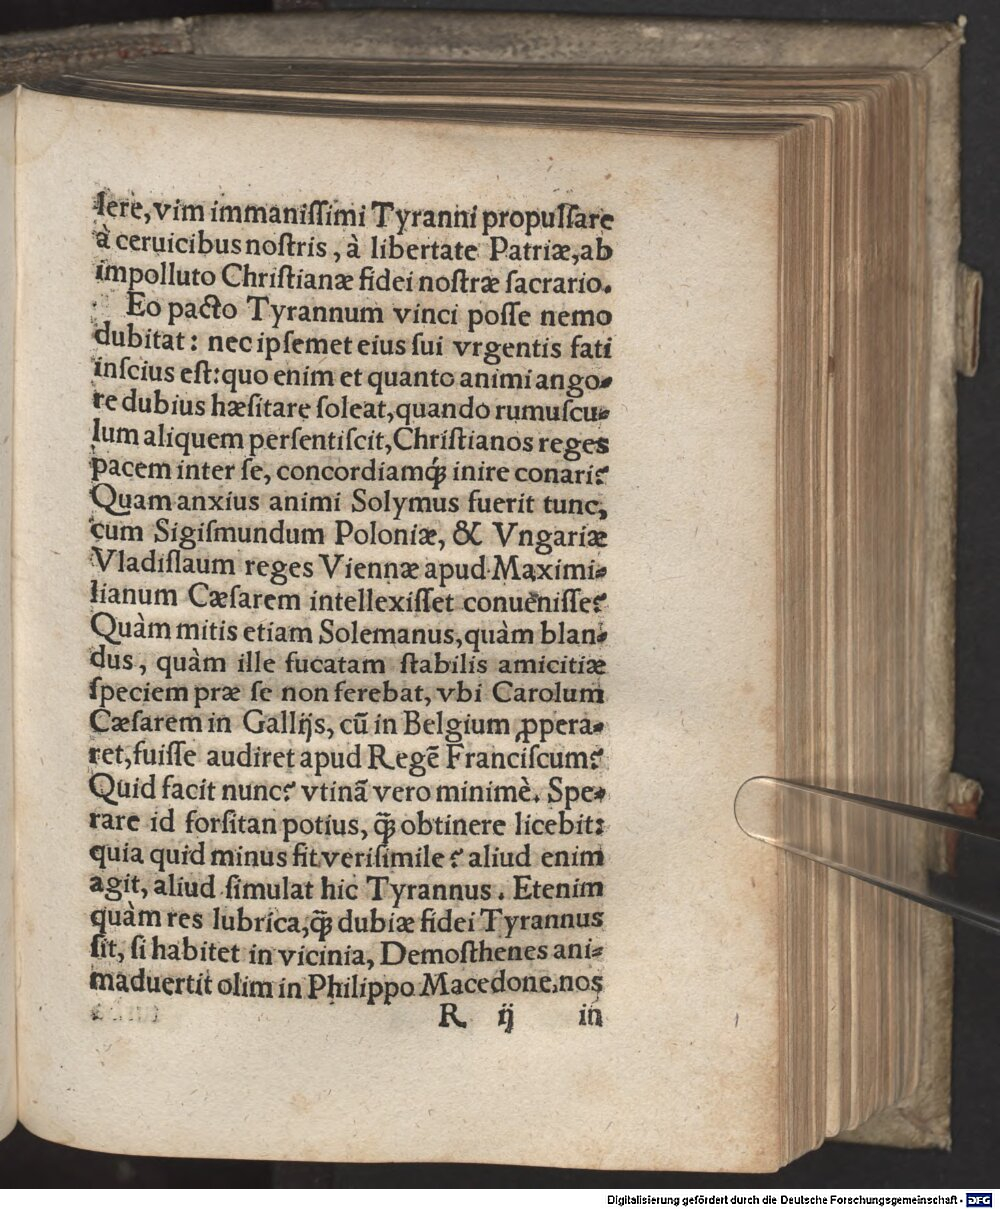 sere, vim immanissimi Tyranni propulsare
à ceruicibus nostris, à libertate Patriæ, ab
impolluto Christianæ fidei nostræ sacrario.
Eo pacto Tyrannum vinci posse nemo
dubitat: nec ipsemet eius sui vrgentis fati
inscius est: quo enim et quanto animi ango-
re dubius hæsitare soleat, quando rumuscu-
lum aliquem persentiscit, Christianos reges
pacem inter se, concordiamq́; inire conari?
Quam anxius animi Solymus fuerit tunc,
cum Sigismundum Poloniæ, & Vngariæ
Vladislaum reges Viennæ apud Maximi-
lianum Cæsarem intellexisset conuenisse?
Quàm mitis etiam Solemanus, quàm blan-
dus, quàm ille fucatam stabilis amicitiæ
speciem præ se non ferebat, vbi Carolum
Cæsarem in Gallijs, cū in Belgium ꝓpera-
ret, fuisse audiret apud Regē Franciscum?
Quid facit nunc? vtinā vero minimè. Spe-
rare id forsitan potius, q̃; obtinere licebit:
quia quid minus fit verisimile? aliud enim
agit, aliud simulat hic Tyrannus. Etenim
quàm res lubrica, q̃; dubiæ fidei Tyrannus
sit, si habitet in vicinia, Demosthenes ani-
maduertit olim in Philippo Macedone, nos
R ij in
Digitalisierung gefördert durch die Deutsche Forschungsgemeinschaft - DFG